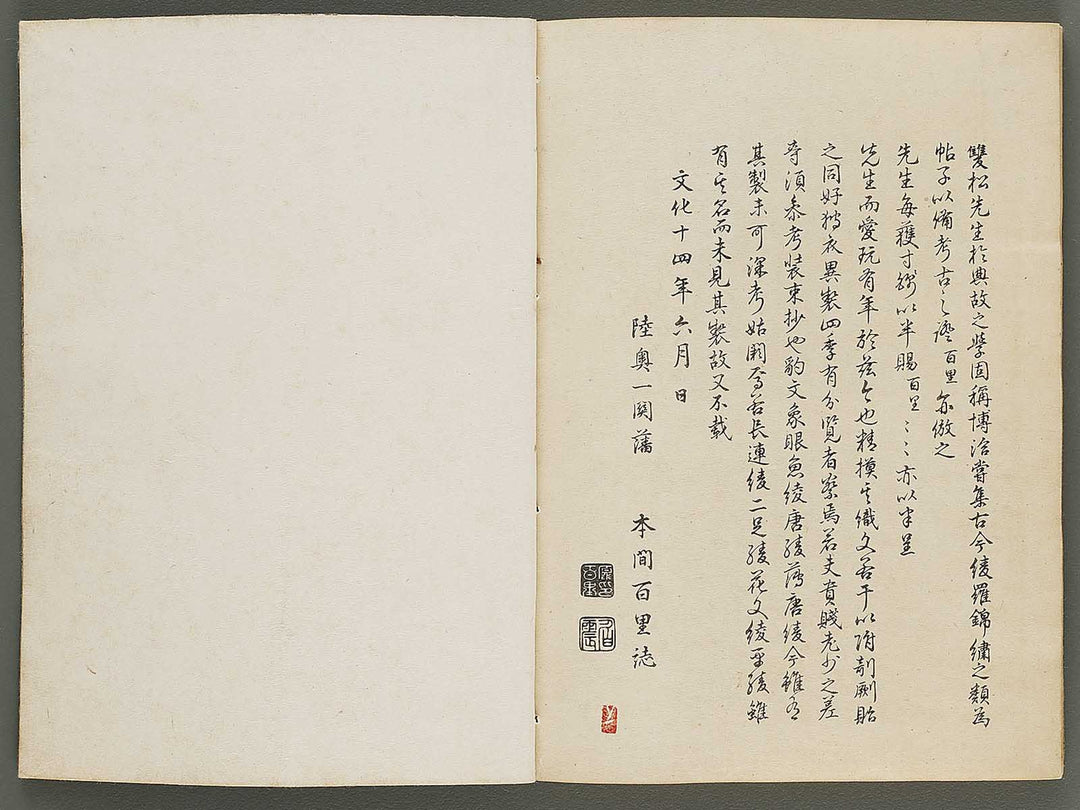 雙松先生於典故之學固稱博洽嘗集古今綾羅錦繡之類為
帖子以備考古之證百里亦倣之
先生每獲寸錦以半賜百里〻〻亦以半呈
先生而愛玩有年於茲今也精摸其織文若干以附剞劂貽
之同好狩衣異製四季有分覽者察焉若夫貴賤老少之差
等須参考装束抄也豹文象眼魚綾唐綾薄唐綾今雖有
其製未可深考姑闕焉若長連綾二足綾花文綾平綾雖
有其名而未見其製故又不載
文化十四年六月日
陸奥一関藩 本間百里誌